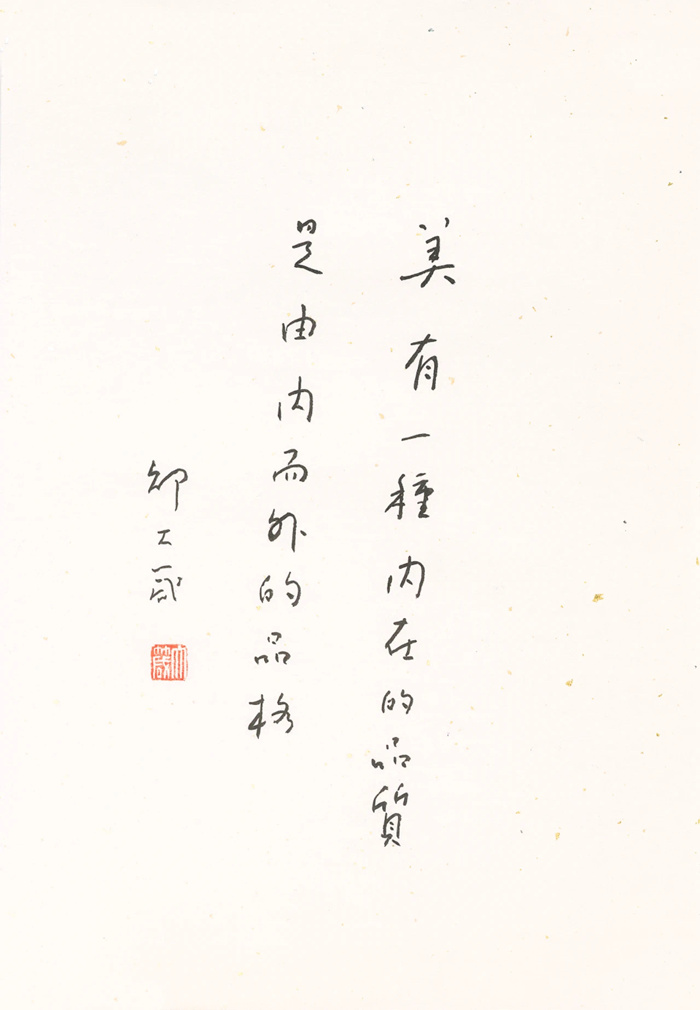 美有一種内在的品質
是由内而外的品格
邵大箴